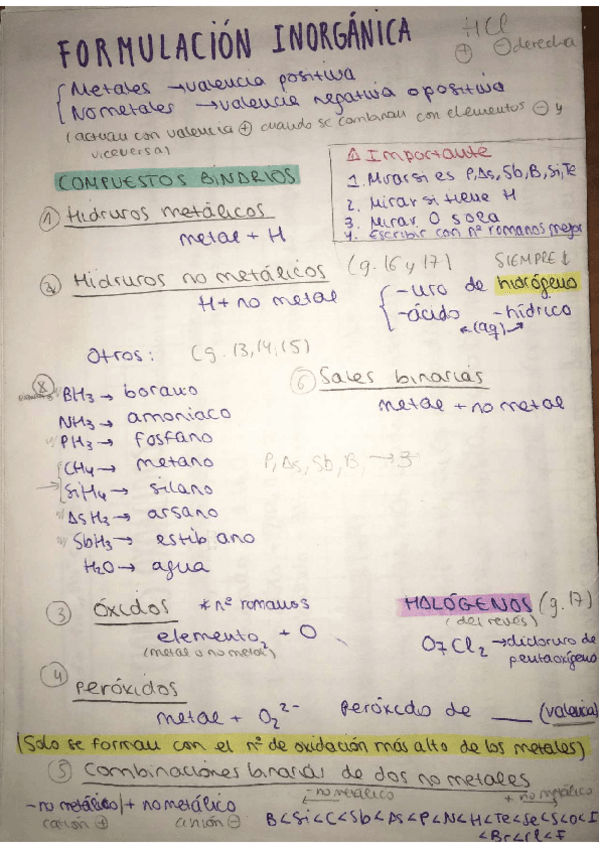 FORMULACIÓN INORGÁNICA
HCl
⊕ ⊖derecha
Metales → valencia positiva
No metales → valencia negativa o positiva
(actúan con valencia ⊕ cuando se combinan con elementos ⊖ y
viceversa)
⚠ Importante
1. Mirar si es P, As, Sb, B, Si, Te
2. Mirar si tiene H
3. Mirar O sola
4. Escribir con nº romanos mejor
COMPUESTOS BINARIOS
① Hidruros metálicos
metal + H
② Hidruros no metálicos (g. 16 y 17)
H + no metal
SIEMPRE ↓
-uro de hidrógeno
-ácido -hídrico
(aq)
Otros: (g. 13, 14, 15)
⑧ BH3 → borano
NH3 → amoniaco
PH3 → fosfano
CH4 → metano
SiH4 → silano
AsH3 → arsano
SbH3 → estibano
H2O → agua
⑥ Sales binarias
metal + no metal
P, As, Sb, B, → 3
③ óxidos *nº romanos
elemento2 + O
(metal o no metal)
HALÓGENOS (g. 17)
(del revés)
O7Cl2 → dicloruro de
pentaoxígeno
④ peróxidos
metal + O2 2- peróxido de ___ (valencia)
(Solo se forman con el nº de oxidación más alto de los metales)
⑤ Combinaciones binarias de dos no metales
- no metálico + no metálico
- no metálico / + no metálico
catión ⊕ anión ⊖
B<Si<C<Sb<As<P<N<H<Te<Se<S<O<I
<Br<Cl<F